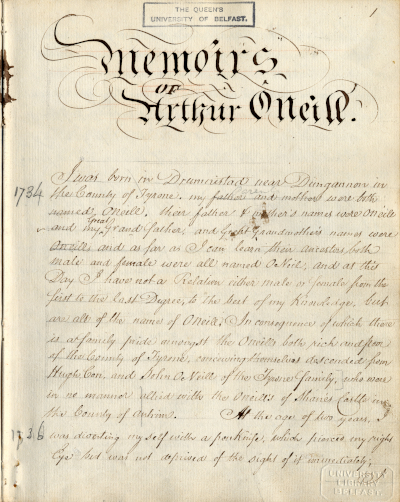 THE QUEEN'S
UNIVERSITY OF BELFAST.
1
Memoirs
OF
Arthur O'Neill.
I was born in Drumnastrad near Dungannon in
1734
the County of Tyrone. my father and mother were both
named O'Neill. their father & mother's names were O'Neill
and my Grand father, and Great Grandmother's names were
Great
O'Neill and as far as I can learn their ancestors both
male and female were all named O'Neil, and at this
Day I have not a Relation either male or female from the
first to the last Degree, to the best of my Knowledge. but
are all of the name of O'Neill. In consequence of which there
is a family pride amongst the O'Neills both rich and poor
of the County of Tyrone, conceiving themselves descended from
Hugh Con. and John O'Neills of the Tyrone family, who were
in no manner allied with the O'Neills of Shane's Castle in
the County of Antrim. At the age of two years, I
1736
was diverting myself with a penknife, which pierced my right
Eye but was not deprived of the sight of it immediately;
UNIVERSITY
LIBRARY
BELFAST